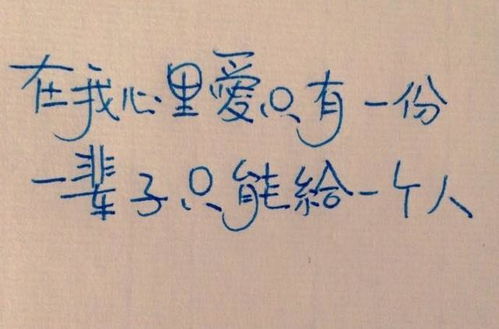 在我心里爱只有一份
一辈子只能給一个人